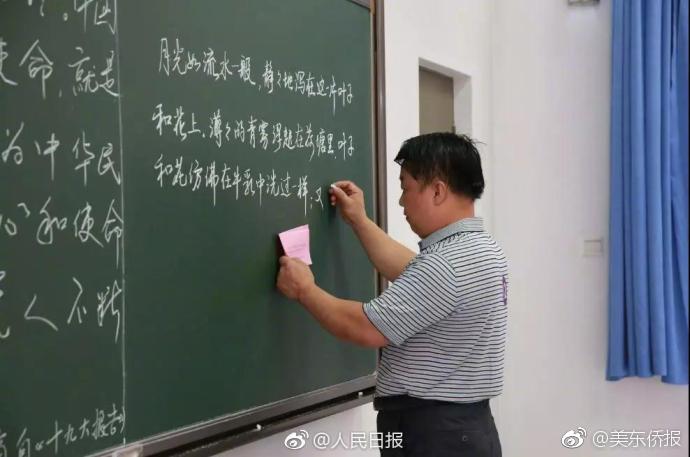 中国
使命，就是
为中华民
心”和使命
人不断
《十九大报告》
月光如流水一般，静々地泻在这一片叶子
和花上。薄々的青雾浮起在荷塘里。叶子
和花仿佛在牛乳中洗过一样；又
@人民日报
@美东侨报